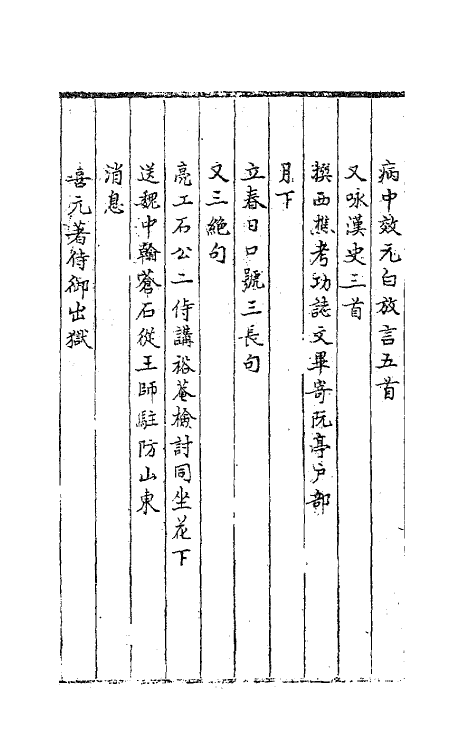 病中效元白放言五首
又咏漢史三首
撰西樵考功誌文畢寄阮亭户部
月下
立春日口號三長句
又三絶句
亮工石公二侍講裕菴檢討同坐花下
送魏中翰蒼石從王師駐防山東
消息
喜元著侍御出獄